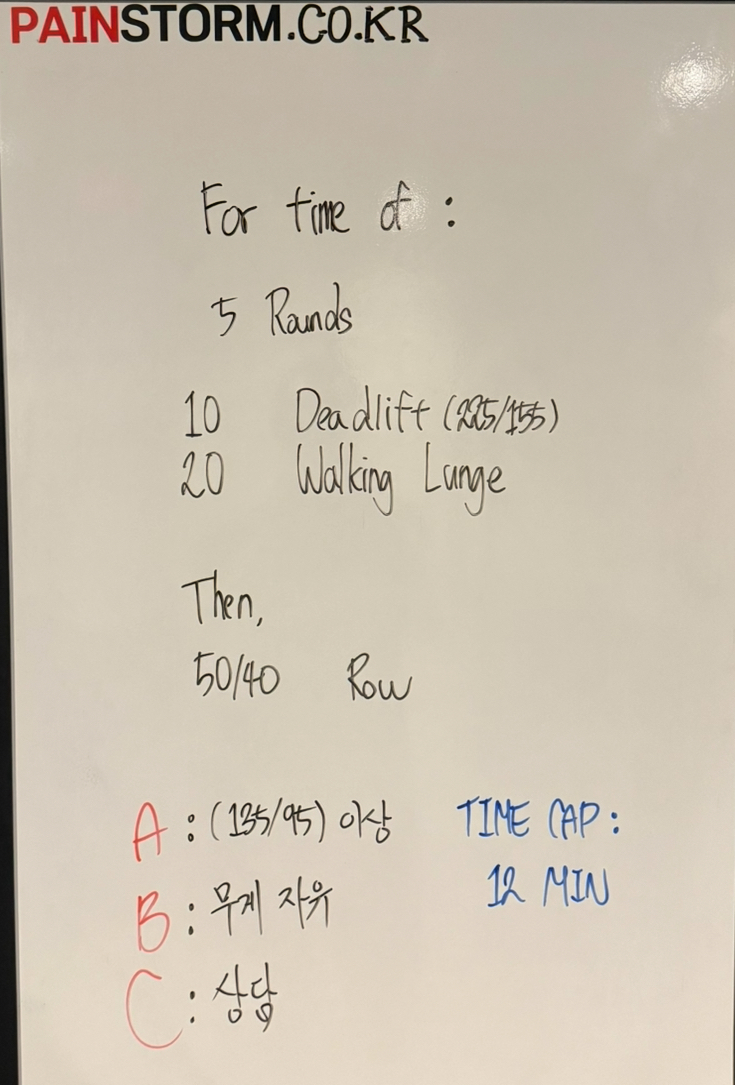 PAINSTORM.CO.KR
For time of :
5 Rounds
10 Deadlift (225/155)
20 Walking Lunge
Then,
50/40 Row
A : (135/95) 이상
B : 무게 자유
C : 상담
TIME CAP :
12 MIN